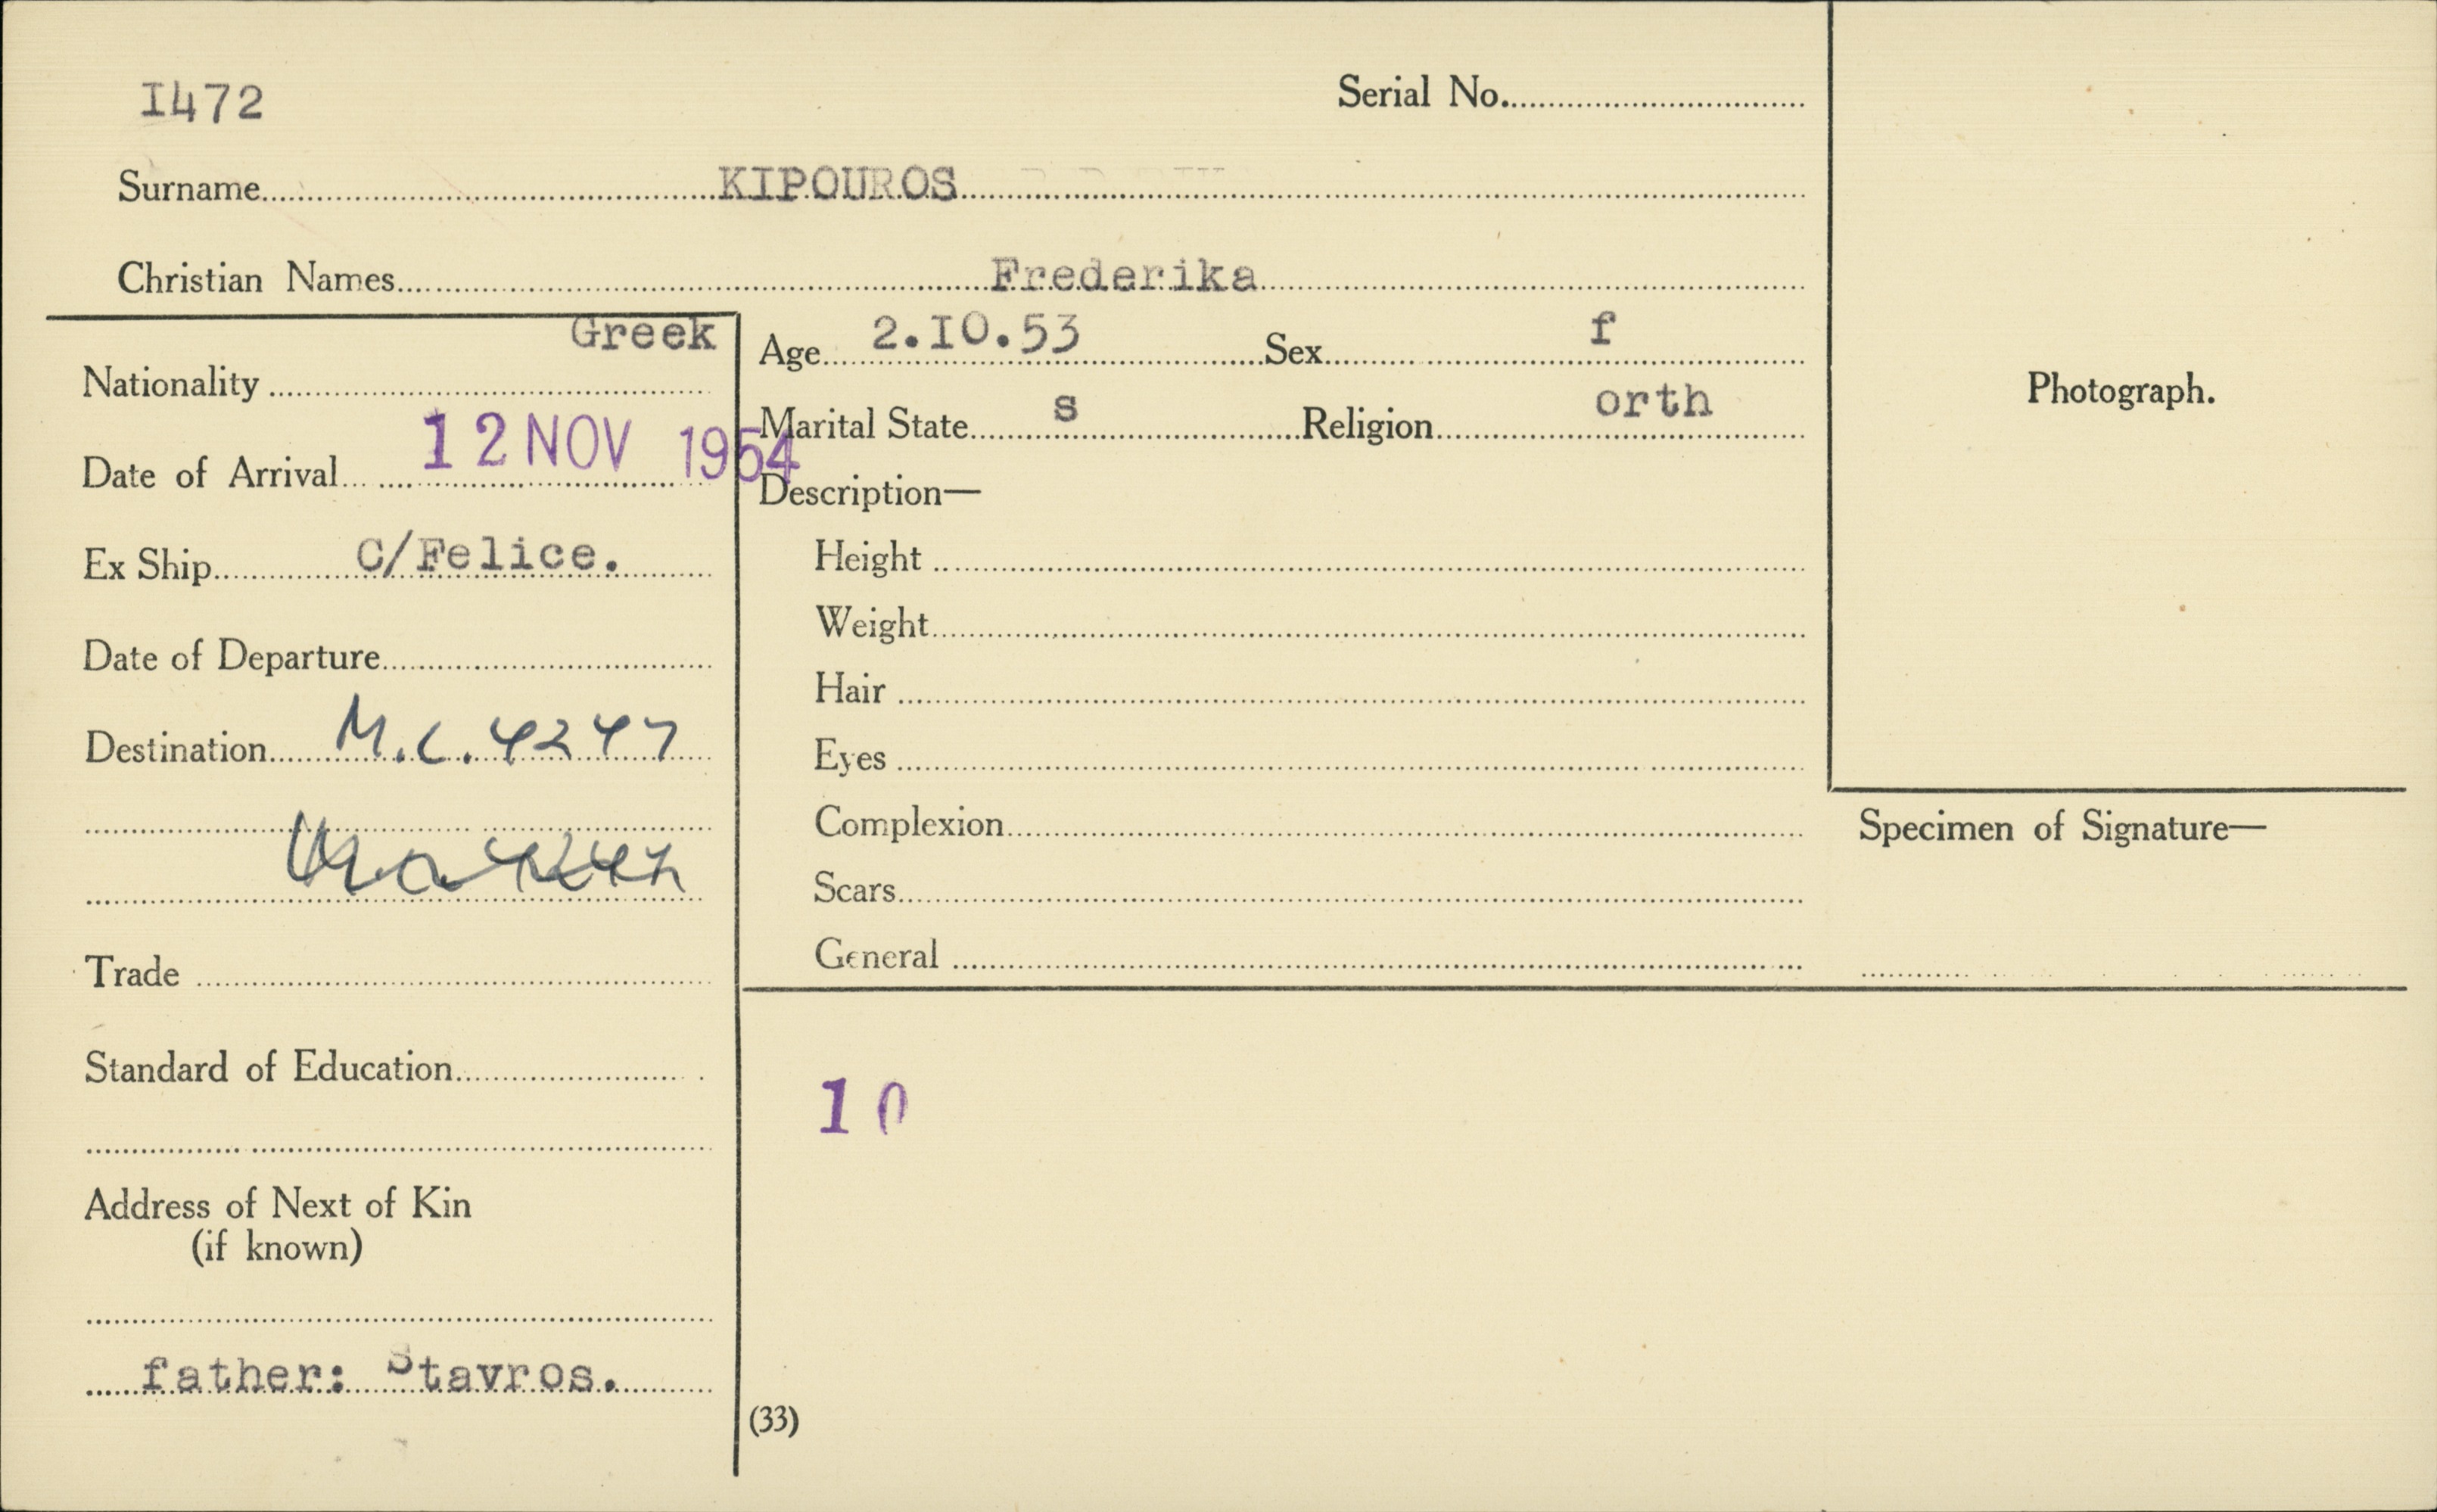 I472
Serial No.
Surname KIPOUROS
Christian Names Frederika
Greek
Nationality
Date of Arrival 12 NOV 1954
Ex Ship C/Felice.
Date of Departure
Destination M.C. 4247
Trade
Standard of Education
Address of Next of Kin
(if known)
father: Stavros.
Age 2.I0.53 Sex f
Marital State s Religion orth
Description—
Height
Weight
Hair
Eyes
Complexion
Scars
General
10
(33)
Photograph.
Specimen of Signature—